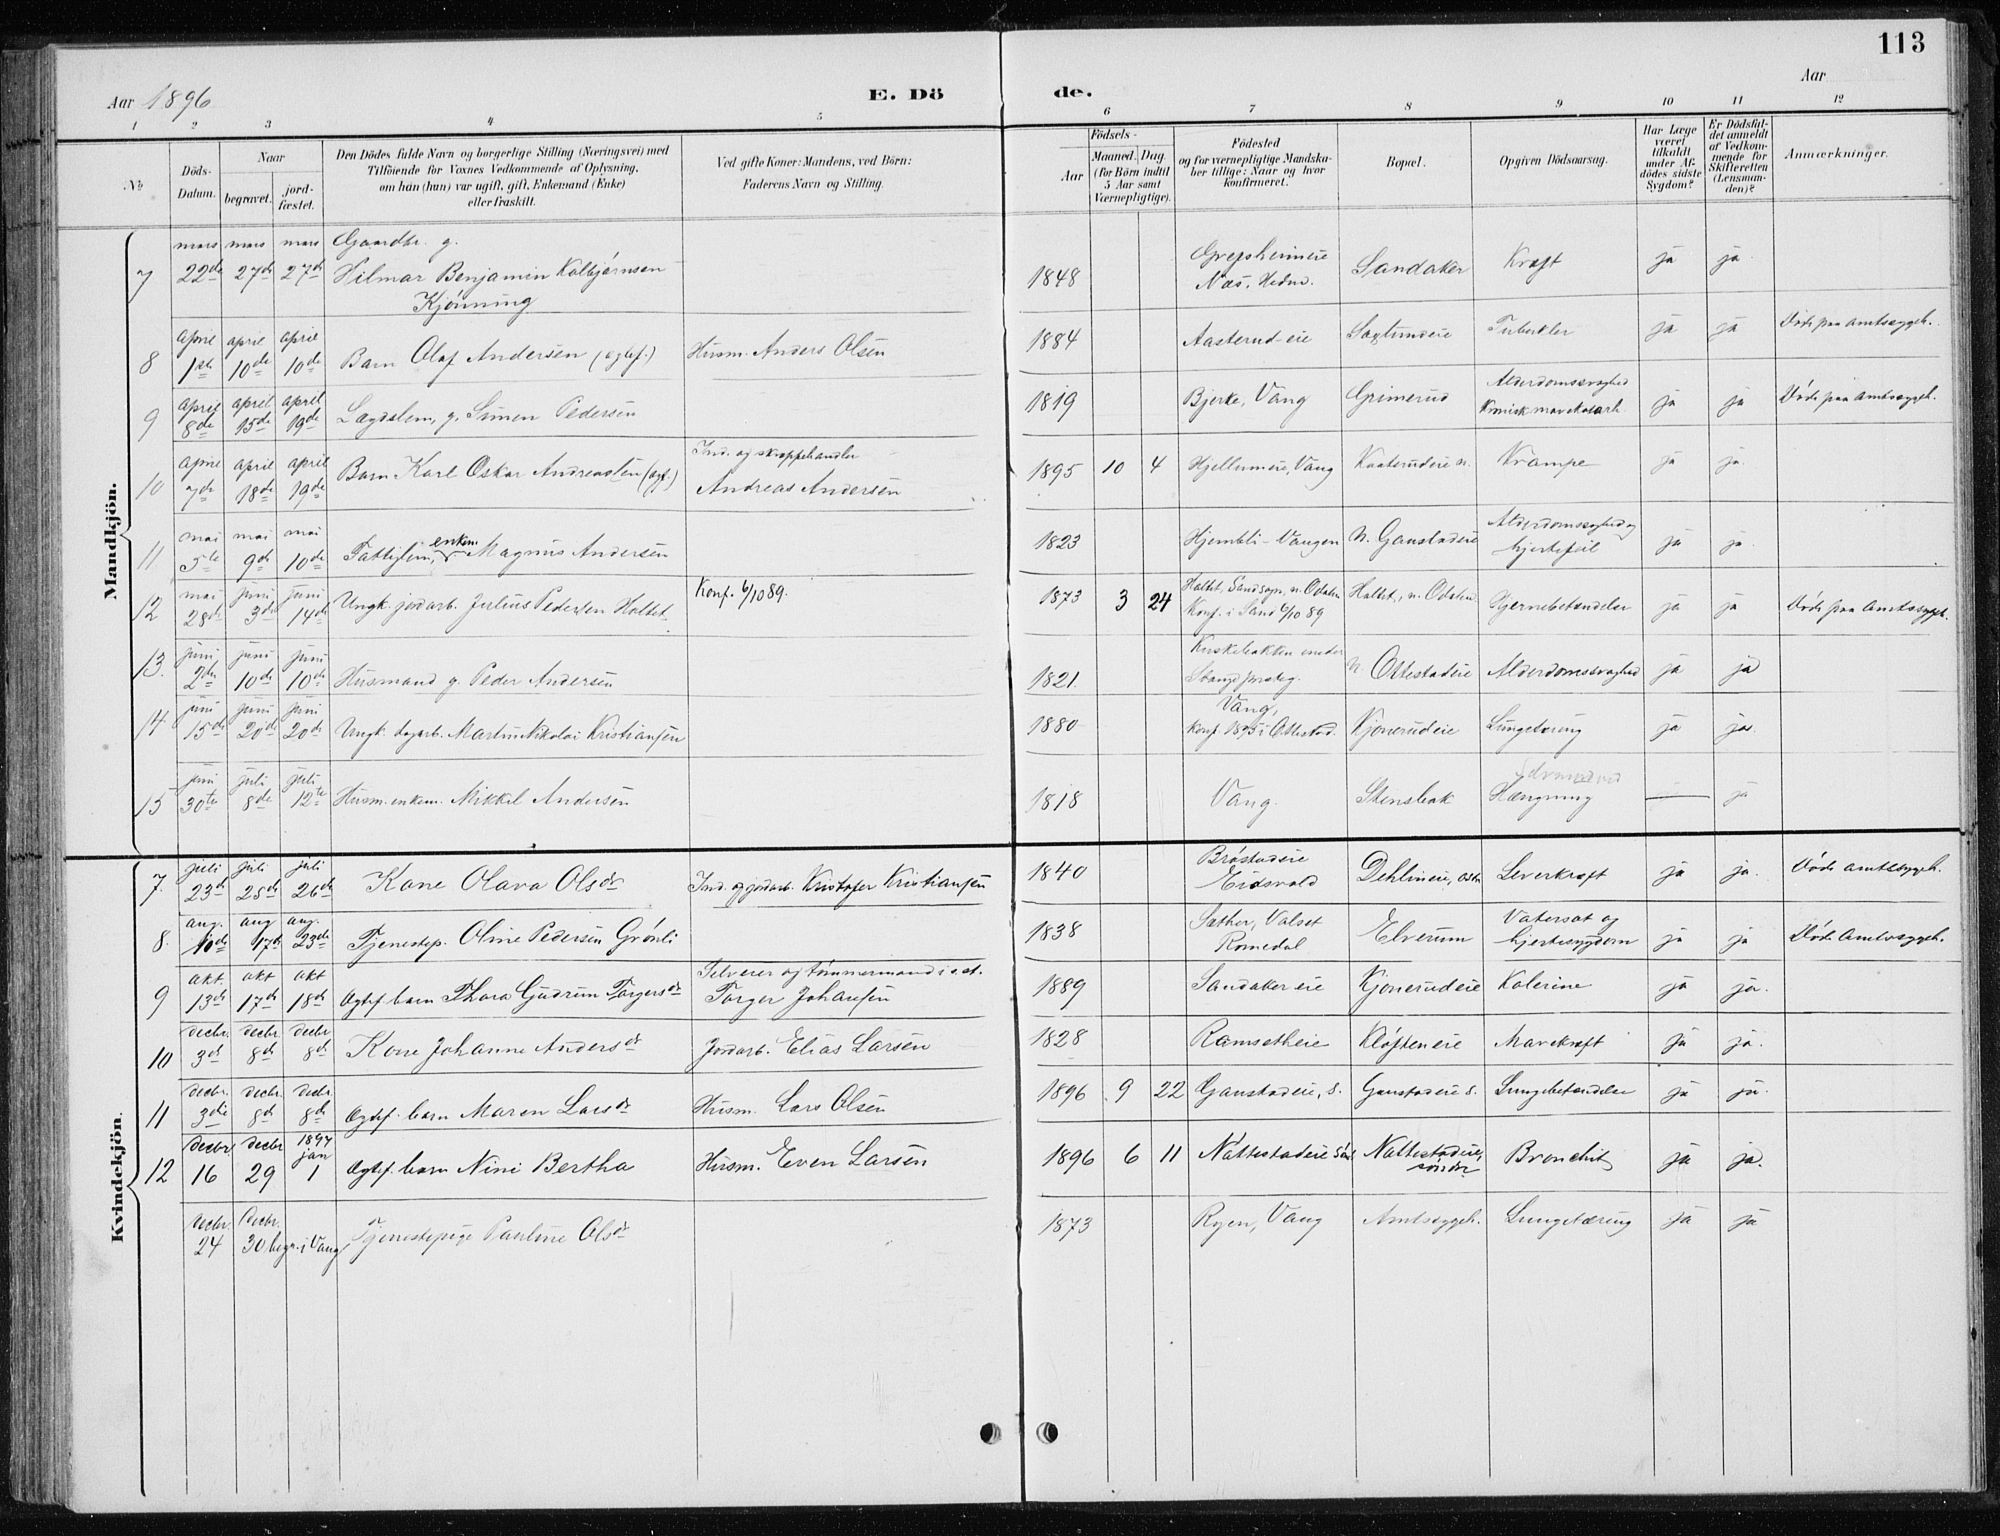 113
Aar 1896
E. Dö
de.
Aar
1 2 3 4 5 6 7 8 9 10 11 12
№
Döds-Datum.
Naar
begravet.
jord-fæstet.
Den Dödes fulde Navn og borgerlige Stilling (Næringsvei) med
Tilföiende for Voxnes Vedkommende af Oplysning,
om han (hun) var ugift, gift, Enkemand (Enke)
eller fraskilt.
Ved gifte Koner: Mandens, ved Börn:
Faderens Navn og Stilling.
Födsels-
Aar
Maaned. Dag.
(for Börn indtil
5 Aar samt
Værnepligtige).
Födested
og for værnepligtige Mandska-
ber tillige: Naar og hvor
konfirmeret.
Bopæl.
Opgiven Dödsaarsag.
Har Læge
været
tilkaldt
under Af-
dödes sidste
Sygdom?
Er Dödsfal-
det anmeldt
af Vedkom-
mende for
Skifteretten
(Lensman-
den)?
Anmærkninger.
Mandkjön.
mars mars mars Gaardbr. g.
7 22de 27de 27de Hilmar Benjamin Kolbjørnsen 1848 Næs, Hedm. Sandaker Kræft ja ja
Kjønning
april april april
8 1ste 10de 10de Barn Olaf Andersen (ægtef.) Husm. Anders Olsen 1884 Aasterud-eie Sagtuneie Tuberkler ja ja Døde paa Amtssygeh.
april april april
9 8de 15de 19de Lægdslem, g. Simen Pedersen 1819 Bjerke, Vang Grimerud Alderdomssvaghed
Kronisk mavekatarh. ja ja Døde paa Amtssygeh.
april april april Ind. og skreppehandler
10 7de 18de 19de Barn Karl Oskar Andreassen (ægt.) Andreas Andersen 1895 10 4 Hjellumeie, Vang Kaaterudeie n. Krampe ja ja.
mai mai mai
11 5te 9de 10de Fattiglem, enkem. Magnus Andersen 1823 Hjembli-Vangen N. Gaustadeie Alderdomssvaghed og
hjertefeil ja ja.
mai juni juni
12 28de 3de 14de Ungk. jordarb. Julius Pedersen Holtet Konf. 6/10 89. 1873 3 24 Holtet, Sand sogn, n. Odalen
Konf. i Sand 6/10 89 Holtet, n. Odalen Hjernebetændelse ja ja Døde paa Amtssygeh.
juni juni juni
13. 2den 10de 10de Husmand g. Peder Andersen 1821. Kuskebakken under
Stange presteg. N. Ottestadeie Alderdomssvaghed ja ja
juni juni juni
14 15de 20de 20de Ungk. dagarb. Martin Nikolai Kristiansen 1880 Vang,
Konf. 1895 i Ottestad. Kjonerudeie Lungetæring ja ja
juni juli juli
15 30te 8de 12te Husm. enkem. Mikkel Andersen 1818 Vang. Stensbak Selvmord ved
Hængning — ja
Kvindekjön.
juli juli juli
7. 23de 25de 26de Kone Olava Olsdr Ind. og jordarb. Kristofer Kristiansen 1840 Brøstadeie
Eidsvold Dehlineie, Leverkræft ja ja. Døde Amtssygeh.
aug. aug aug.
8. 10de 17de 23de Tjenestep. Oline Pedersen Grønli 1838 Sæther, Valset
Romedal Elverum Vatersot og
hjertesygdom ja ja Døde Amtssygeh.
okt. okt okt Selveier og tømmermand i s. st.
9 13de 17de 18de Ægtef. barn Thora Gudrun Torgersdr Torger Johansen 1889 Sandaker eie Kjonerudeie Kolerine ja ja.
decbr. decbr. decbr.
10 3de 8de 8de Kone Johanne Andersdr Jordarb. Elias Larsen 1828 Ramsetheie Kløfteneie Mavekræft ja ja.
decbr. decbr. decbr.
11 3die 8de 8de Ægtef. barn Maren Larsdr Husm. Lars Olsen 1896 9 22 Gaustadeie, s. Gaustadeie s. Lungebetændelse ja ja.
decbr decbr 1897 jan
12 16 29 1 Ægtef. barn Nini Bertha Husm. Even Larsen 1896 6 11 Nattestadeie Nattestadeie, søndre Bronchit ja ja.
decbr. decbr.
24 30 begr. i Vang Tjenestepige Pauline Olsdr 1873 Ryen, Vang Amtssygeh. Lungetæring ja ja